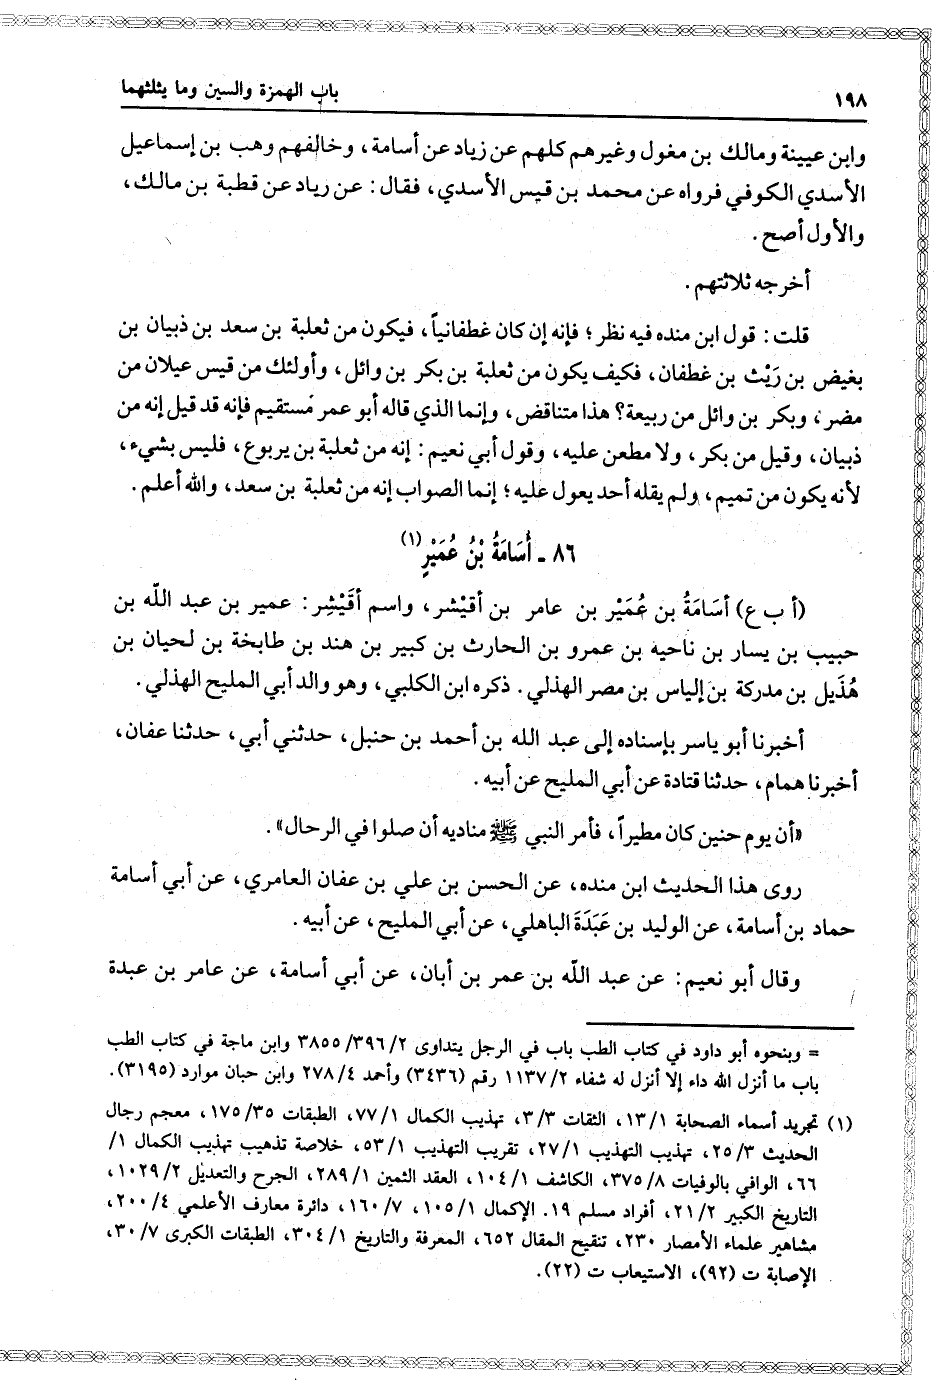 ١٩٨ باب الهمزة والسين وما يثلثهما
وابن عيينة ومالك بن مغول وغيرهم كلهم عن زياد عن أسامة، وخالفهم وهب بن إسماعيل
الأسدي الكوفي فرواه عن محمد بن قيس الأسدي، فقال: عن رياد عن قطبة بن مالك،
والأول أصح.
أخرجه ثلاثتهم.
قلت: قول ابن منده فيه نظر؛ فإنه إن كان غطفانياً، فيكون من ثعلبة بن سعد بن ذبيان بن
بغيض بن رَيْث بن غطفان، فكيف يكون من ثعلبة بن بكر بن وائل، وأولئك من قيس عيلان من
مضر، وبكر بن وائل من ربيعة؟ هذا متناقض، وإنما الذي قاله أبو عمر مُستقيم فإنه قد قيل إنه من
ذبيان، وقيل من بكر، ولا مطعن عليه، وقول أبي نعيم: إنه من ثعلبة بن يربوع، فليس بشيء،
لأنه يكون من تميم، ولم يقله أحد يعول عليه؛ إنما الصواب إنه من ثعلبة بن سعد، والله أعلم.
٨٦ ـ أُسَامَةُ بْنُ عُمَيْرٍ(١)
(أ ب ع) أسَامَةُ بن عُمَيْر بن عامر بن أقيْشر، واسم أقَيْشِر: عمير بن عبد اللّه بن
حبيب بن يسار بن ناحيه بن عمرو بن الحارث بن كبير بن هند بن طابخة بن لحيان بن
هُذَيل بن مدركة بن إلياس بن مضر الهذلي. ذكره ابن الكلبي، وهو والد أبي المليح الهذلي.
أخبرنا أبو ياسر بإسناده إلى عبد الله بن أحمد بن حنبل، حدثني أبي، حدثنا عفان،
أخبرنا همام، حدثنا قتادة عن أبي المليح عن أبيه.
«أن يوم حنين كان مطيراً، فأمر النبي ﷺ مناديه أن صلوا في الرحال».
روى هذا الحديث ابن منده، عن الحسن بن علي بن عفان العامري، عن أبي أسامة
حماد بن أسامة، عن الوليد بن عَبَدَةَ الباهلي، عن أبي المليح، عن أبيه.
وقال أبو نعيم: عن عبد اللّه بن عمر بن أبان، عن أبي أسامة، عن عامر بن عبدة
= وبنحوه أبو داود في كتاب الطب باب في الرجل يتداوى ٣٨٥٥/٣٩٦/٢ وابن ماجة في كتاب الطب
باب ما أنزل الله داء إلا أنزل له شفاء ١١٣٧/٢ رقم (٣٤٣٦) وأحمد ٢٧٨/٤ وابن حبان موارد (٣١٩٥).
(١) تجريد أسماء الصحابة ١٣/١، الثقات ٣/٣، تهذيب الكمال ٧٧/١، الطبقات ١٧٥/٣٥، معجم رجال
الحديث ٢٥/٣، تهذيب التهذيب ٢٧/١، تقريب التهذيب ٥٣/١، خلاصة تذهيب تهذيب الكمال ١/
٦٦، الوافي بالوفيات ٣٧٥/٨، الكاشف ١٠٤/١، العقد الثمين ٢٨٩/١، الجرح والتعديل ١٠٢٩/٢،
التاريخ الكبير ٢١/٢، أفراد مسلم ١٩. الإكمال ١٠٥/١، ١٦٠/٧، دائرة معارف الأعلمي ٢٠٠/٤،
مشاهير علماء الأمصار ٢٣٠، تنقيح المقال ٦٥٢، المعرفة والتاريخ ٣٠٤/١، الطبقات الكبرى ٣٠/٧،
الإصابة ت (٩٢)، الاستيعاب ت (٢٢).